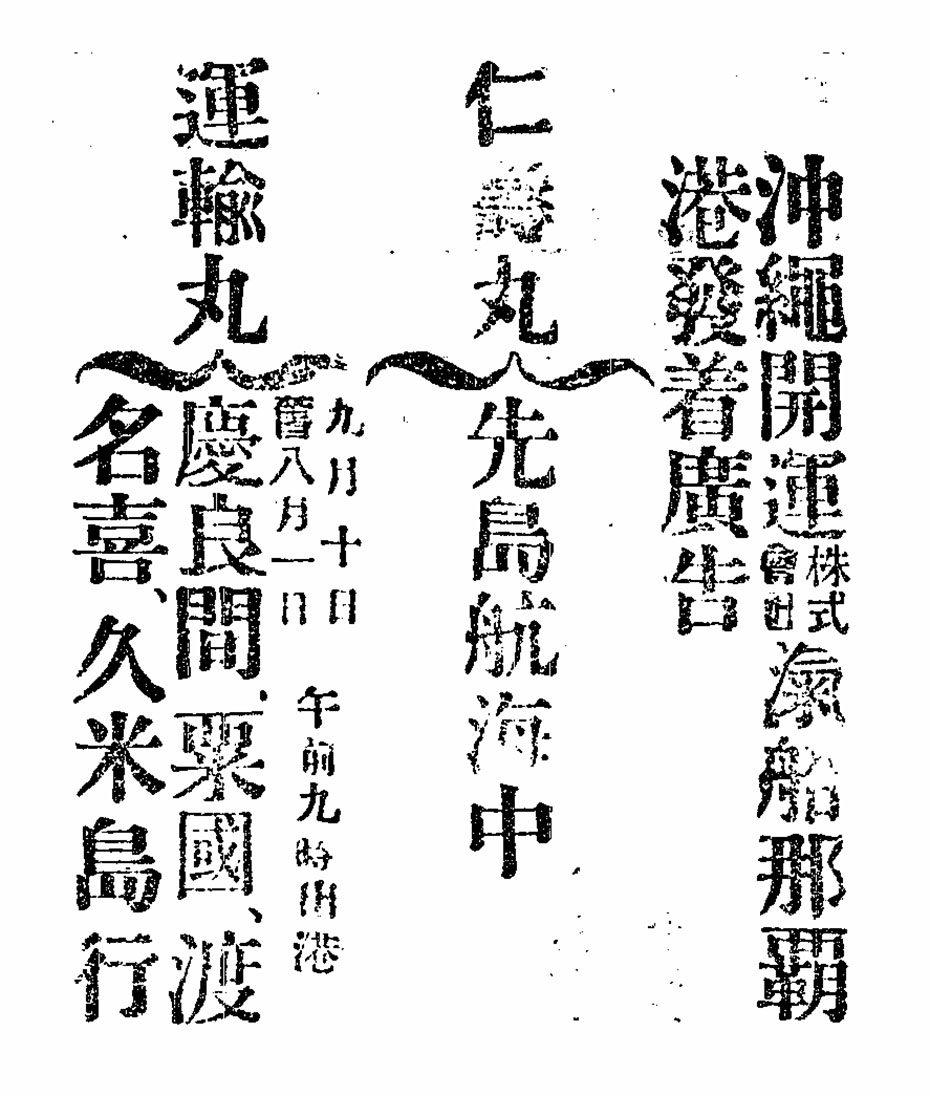 沖繩開運株式會社滊船那覇
港發着廣告
仁壽丸
先島航海中
運輸丸
九月十日
舊八月一日
午前九時出港
慶良間、粟國、渡
名喜、久米島行